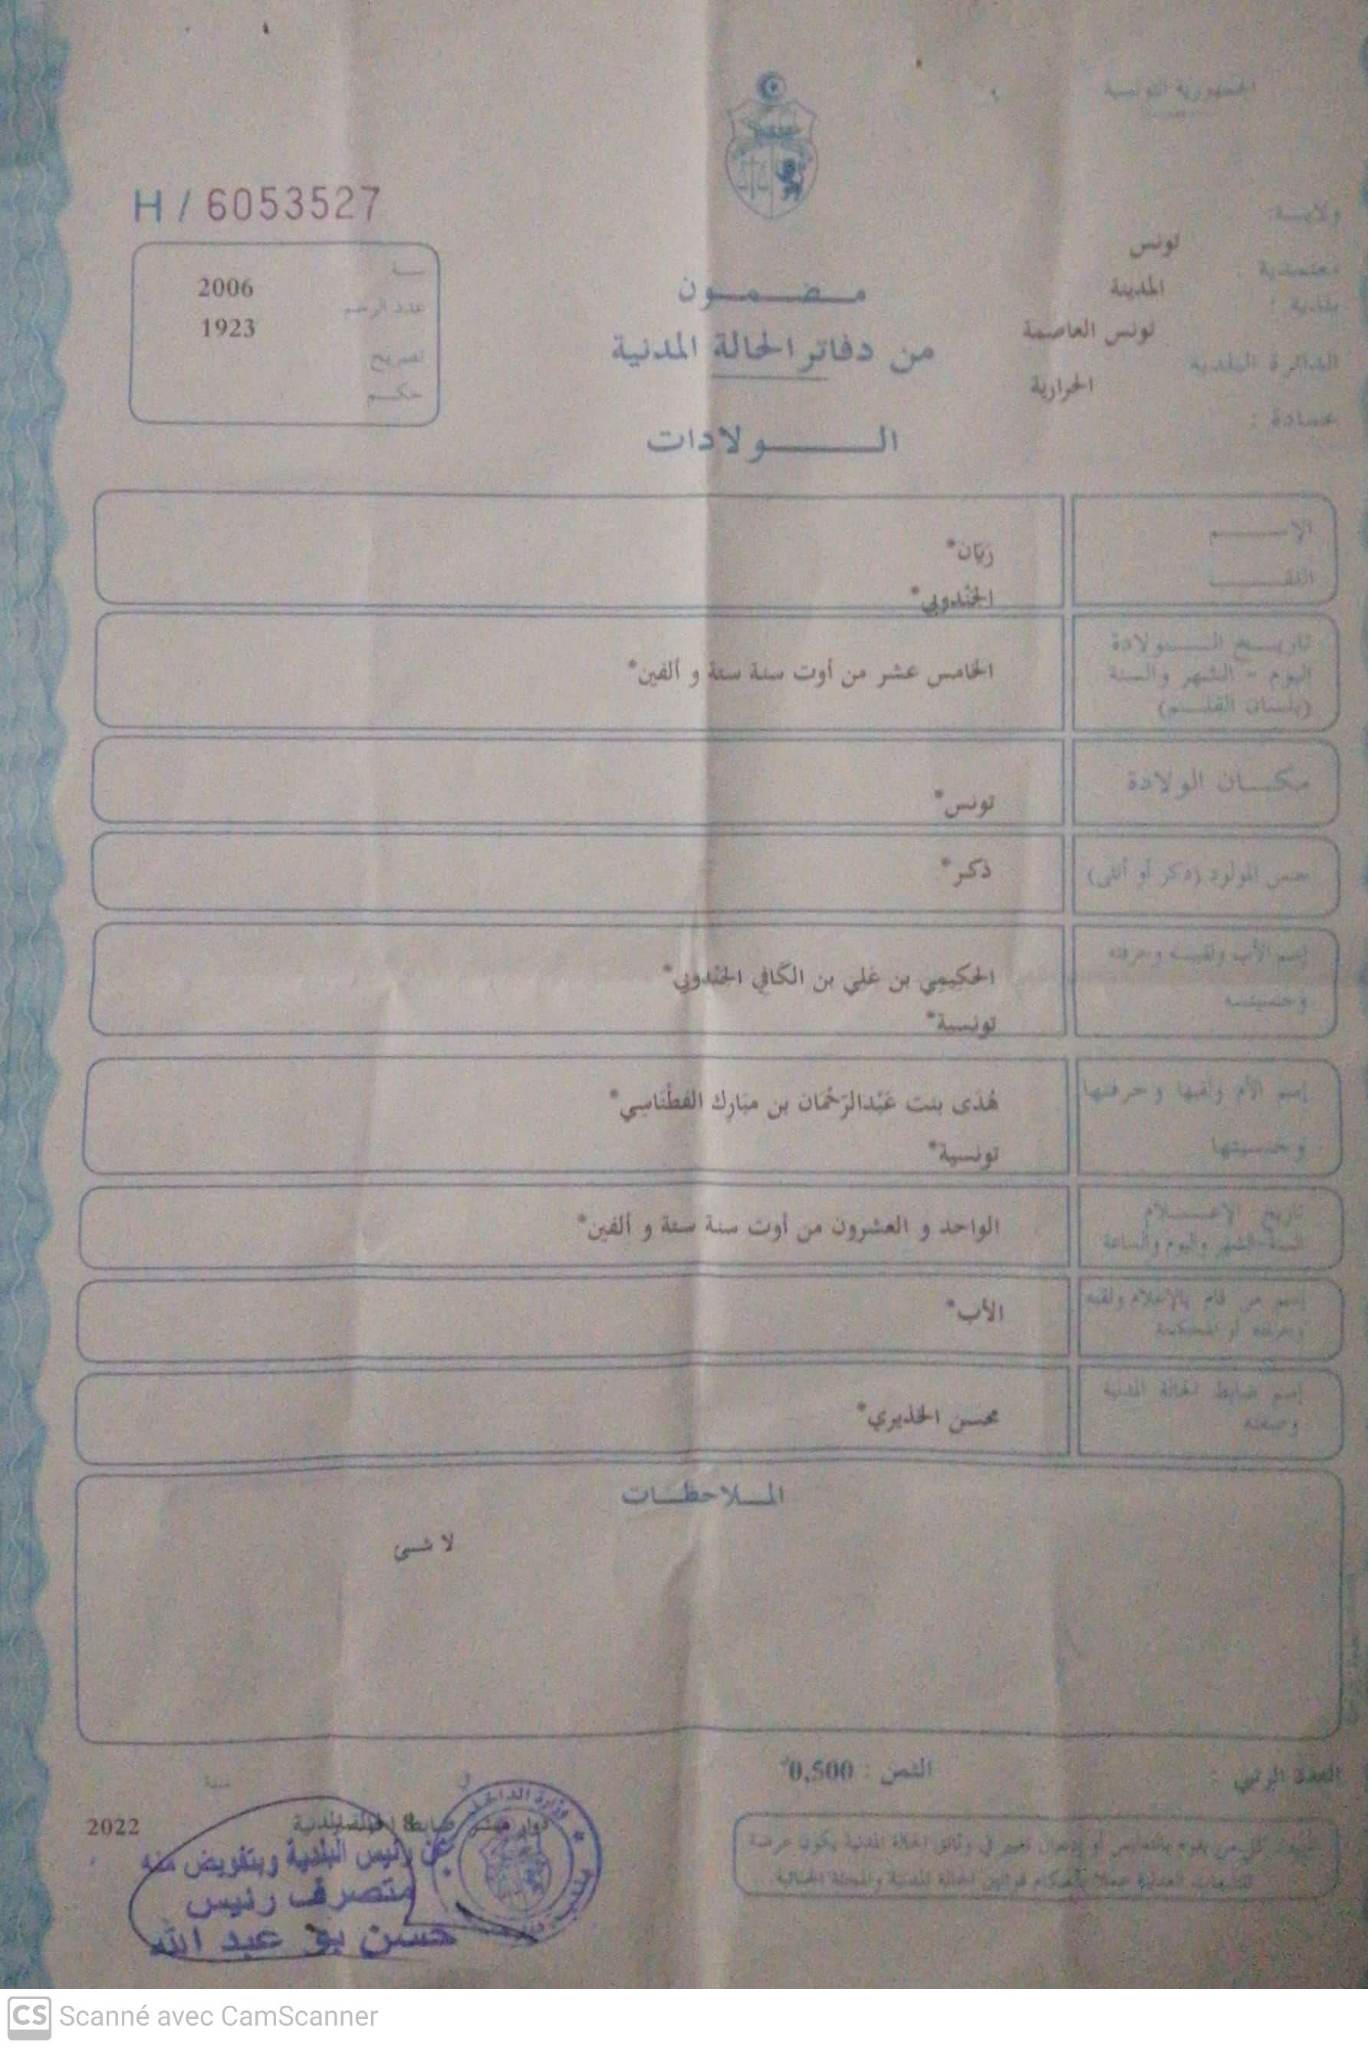 الجمهورية التونسية
H / 6053527
ولايـة:
تونس
معتمدية :
المدينة
بلدية :
تونس العاصمة
الدائرة البلدية
الحرارية
عمادة :
سنة
2006
عدد الرسم
1923
تصريح
حكم
مضمون
من دفاتر الحالة المدنية
الولادات
الإسم
رَيَان*
اللقب
الجَنْدوبي*
تاريخ الولادة
اليوم - الشهر والسنة
(بلسان القلم)
الخامس عشر من أوت سنة ستة و ألفين*
مكان الولادة
تونس*
جنس المولود (ذكر أو أنثى)
ذكر*
إسم الأب ولقبه وحرفته
وجنسيته
الحَكِيمِي بن عَلي بن الكَافي الجَنْدوبي*
تونسية*
إسم الأم ولقبها وحرفتها
وجنسيتها
هُدَى بنت عَبْدالرَحْمَان بن مبَارِك الفطْنَاسِي*
تونسية*
تاريخ الإعلام
السنة-الشهر واليوم والساعة
الواحد و العشرون من أوت سنة ستة و ألفين*
إسم من قام بالإعلام ولقبه
وحرفته أو المحكمة
الأب*
إسم ضابط الحالة المدنية
وصفته
محسن الخذيري*
الملاحظات
لا شئ
العدد الرتبي :
الثمن : 0,500
سنة
2022
ضابط الحالة المدنية
عن رئيس البلدية وبتفويض منه
متصرف رئيس
حسن بو عبد الله
وزارة الداخلية
كل من يقوم بالتدليس أو إدخال تغيير في وثائق الحالة المدنية يكون عرضة
للتتبعات العدلية عملا بأحكام قوانين الحالة المدنية والمجلة الجنائية
CS Scanné avec CamScanner